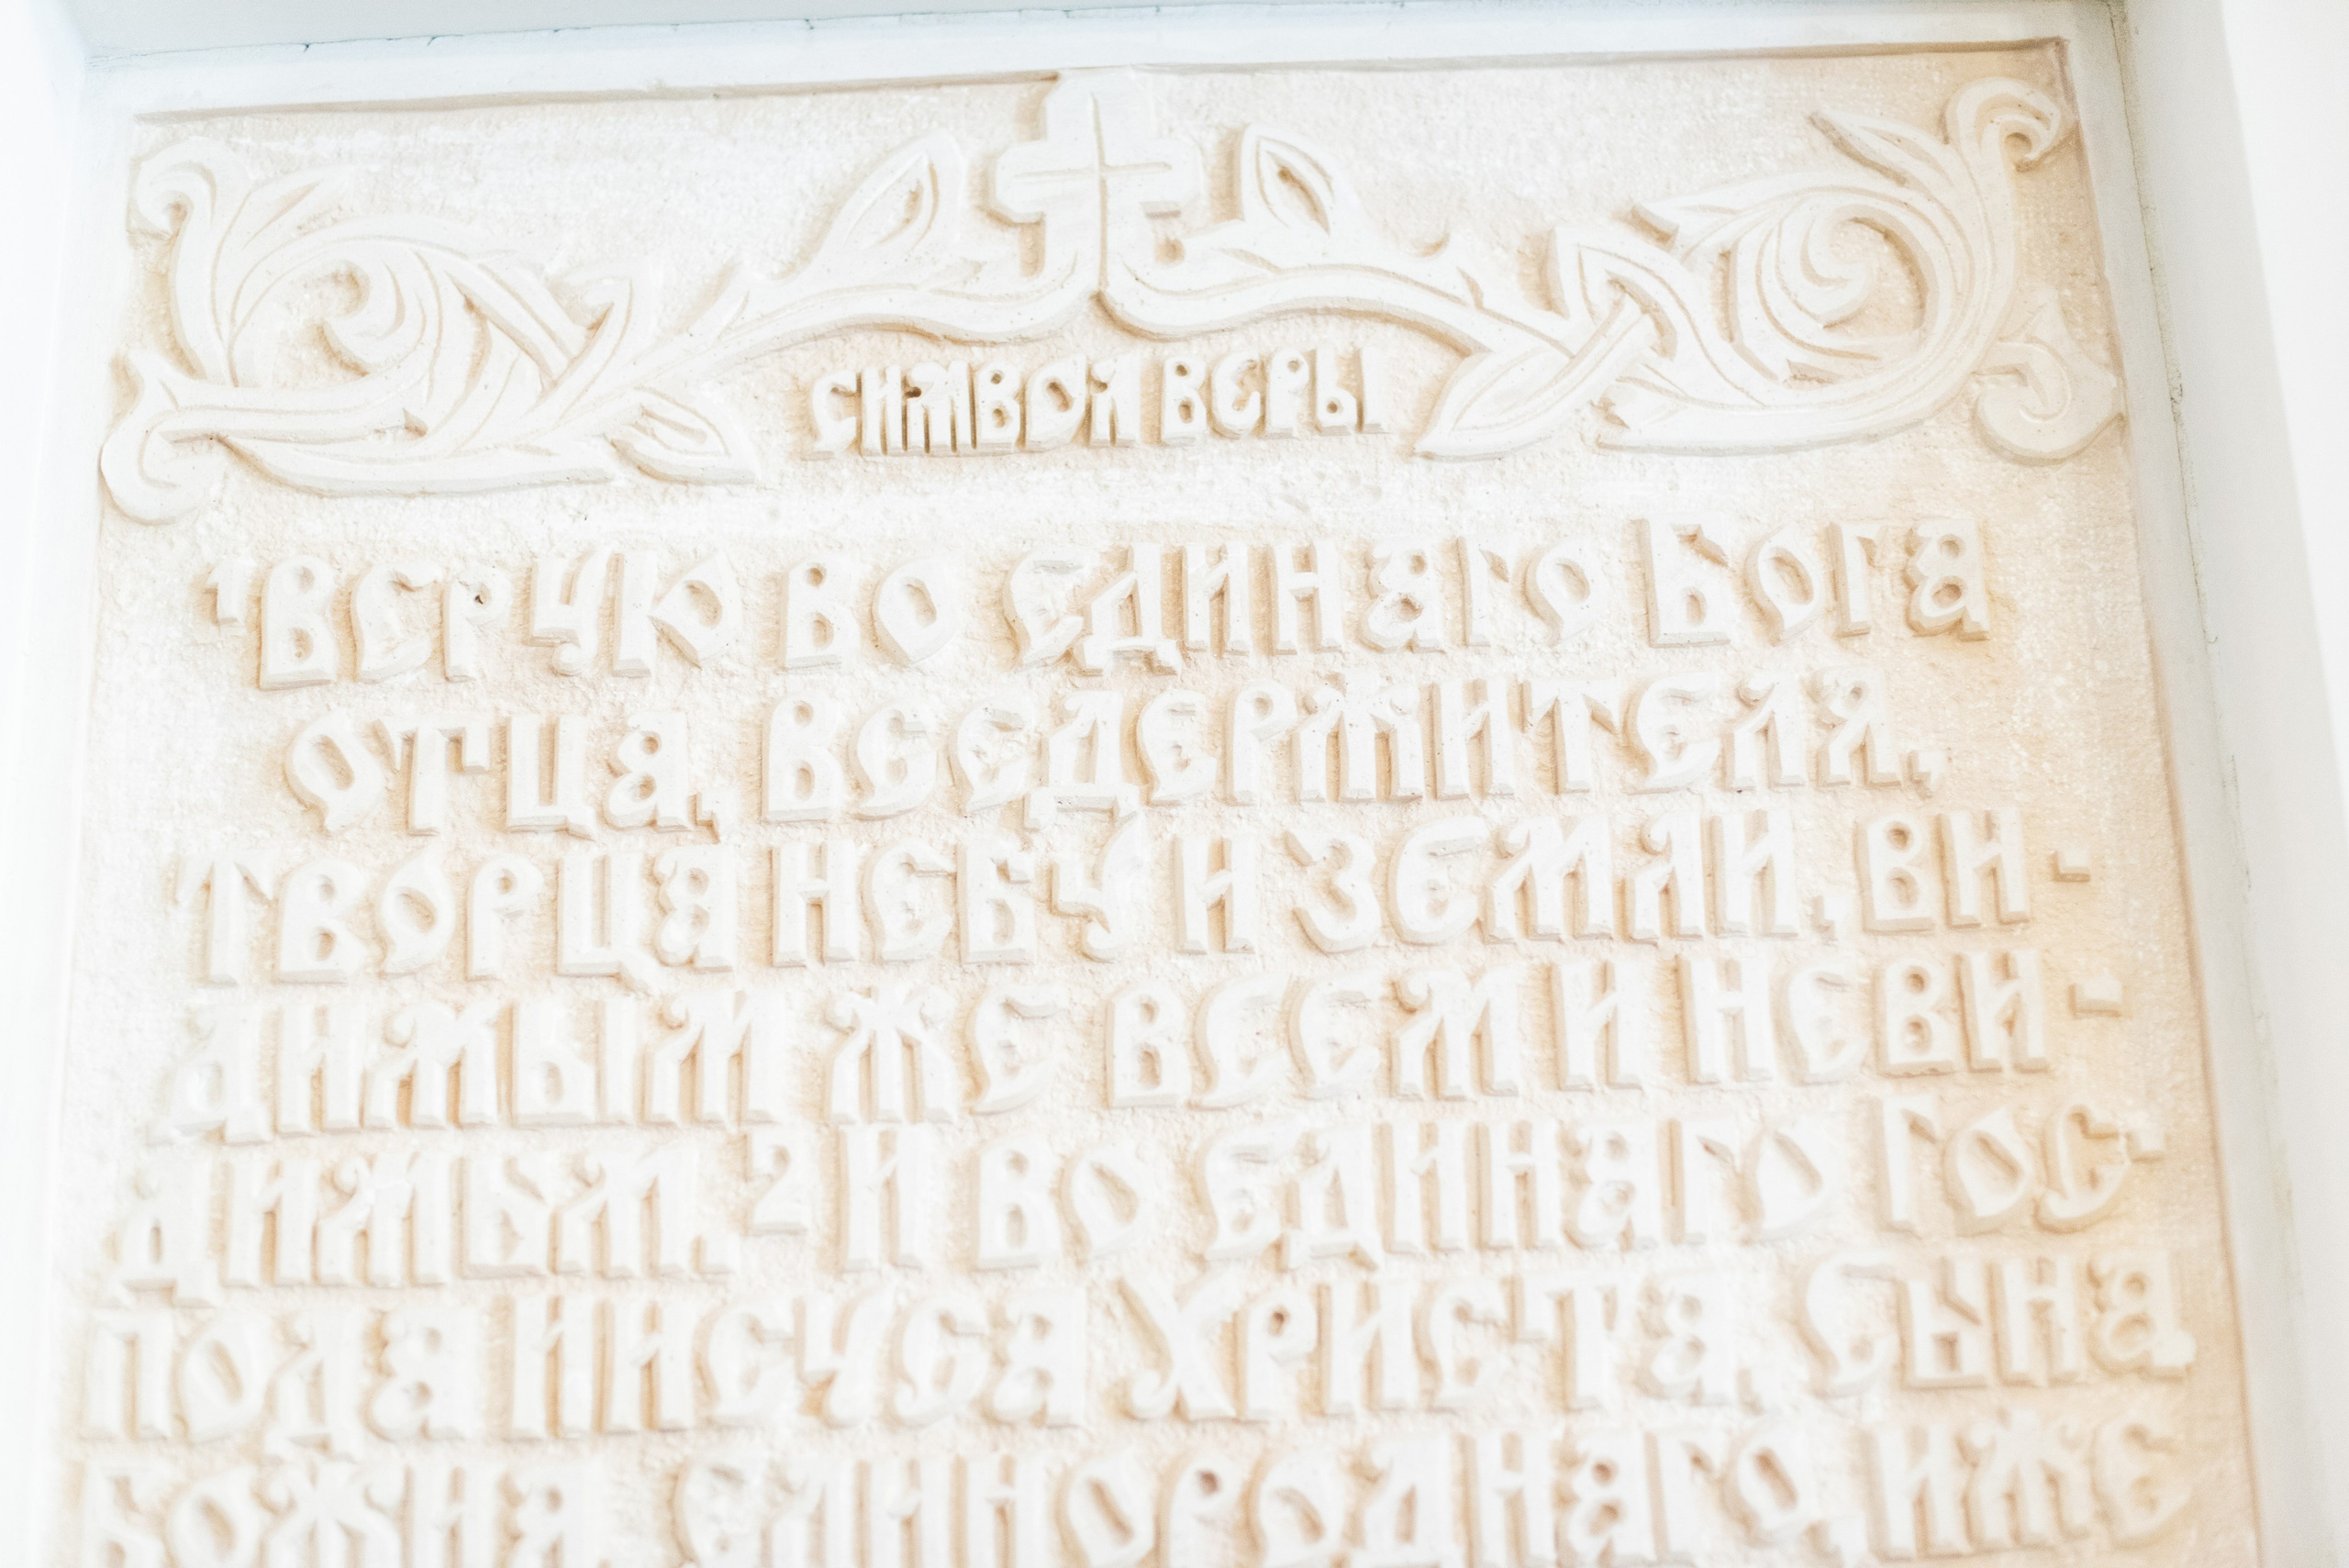 СИМВОЛ ВЕРЫ
1 ВЕРУЮ ВО ЕДИНАГО БОГА
ОТЦА, ВСЕДЕРЖИТЕЛЯ,
ТВОРЦА НЕБУ И ЗЕМЛИ, ВИ-
ДИМЫМ ЖЕ ВСЕМ И НЕВИ-
ДИМЫМ. 2 И ВО ЕДИНАГО ГОС-
ПОДА ИИСУСА ХРИСТА, СЫНА
БОЖИЯ, ЕДИНОРОДНАГО, ИЖЕ